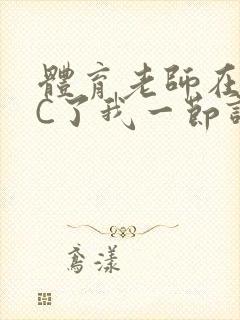 體育老師在
C了我一節
鳶漾